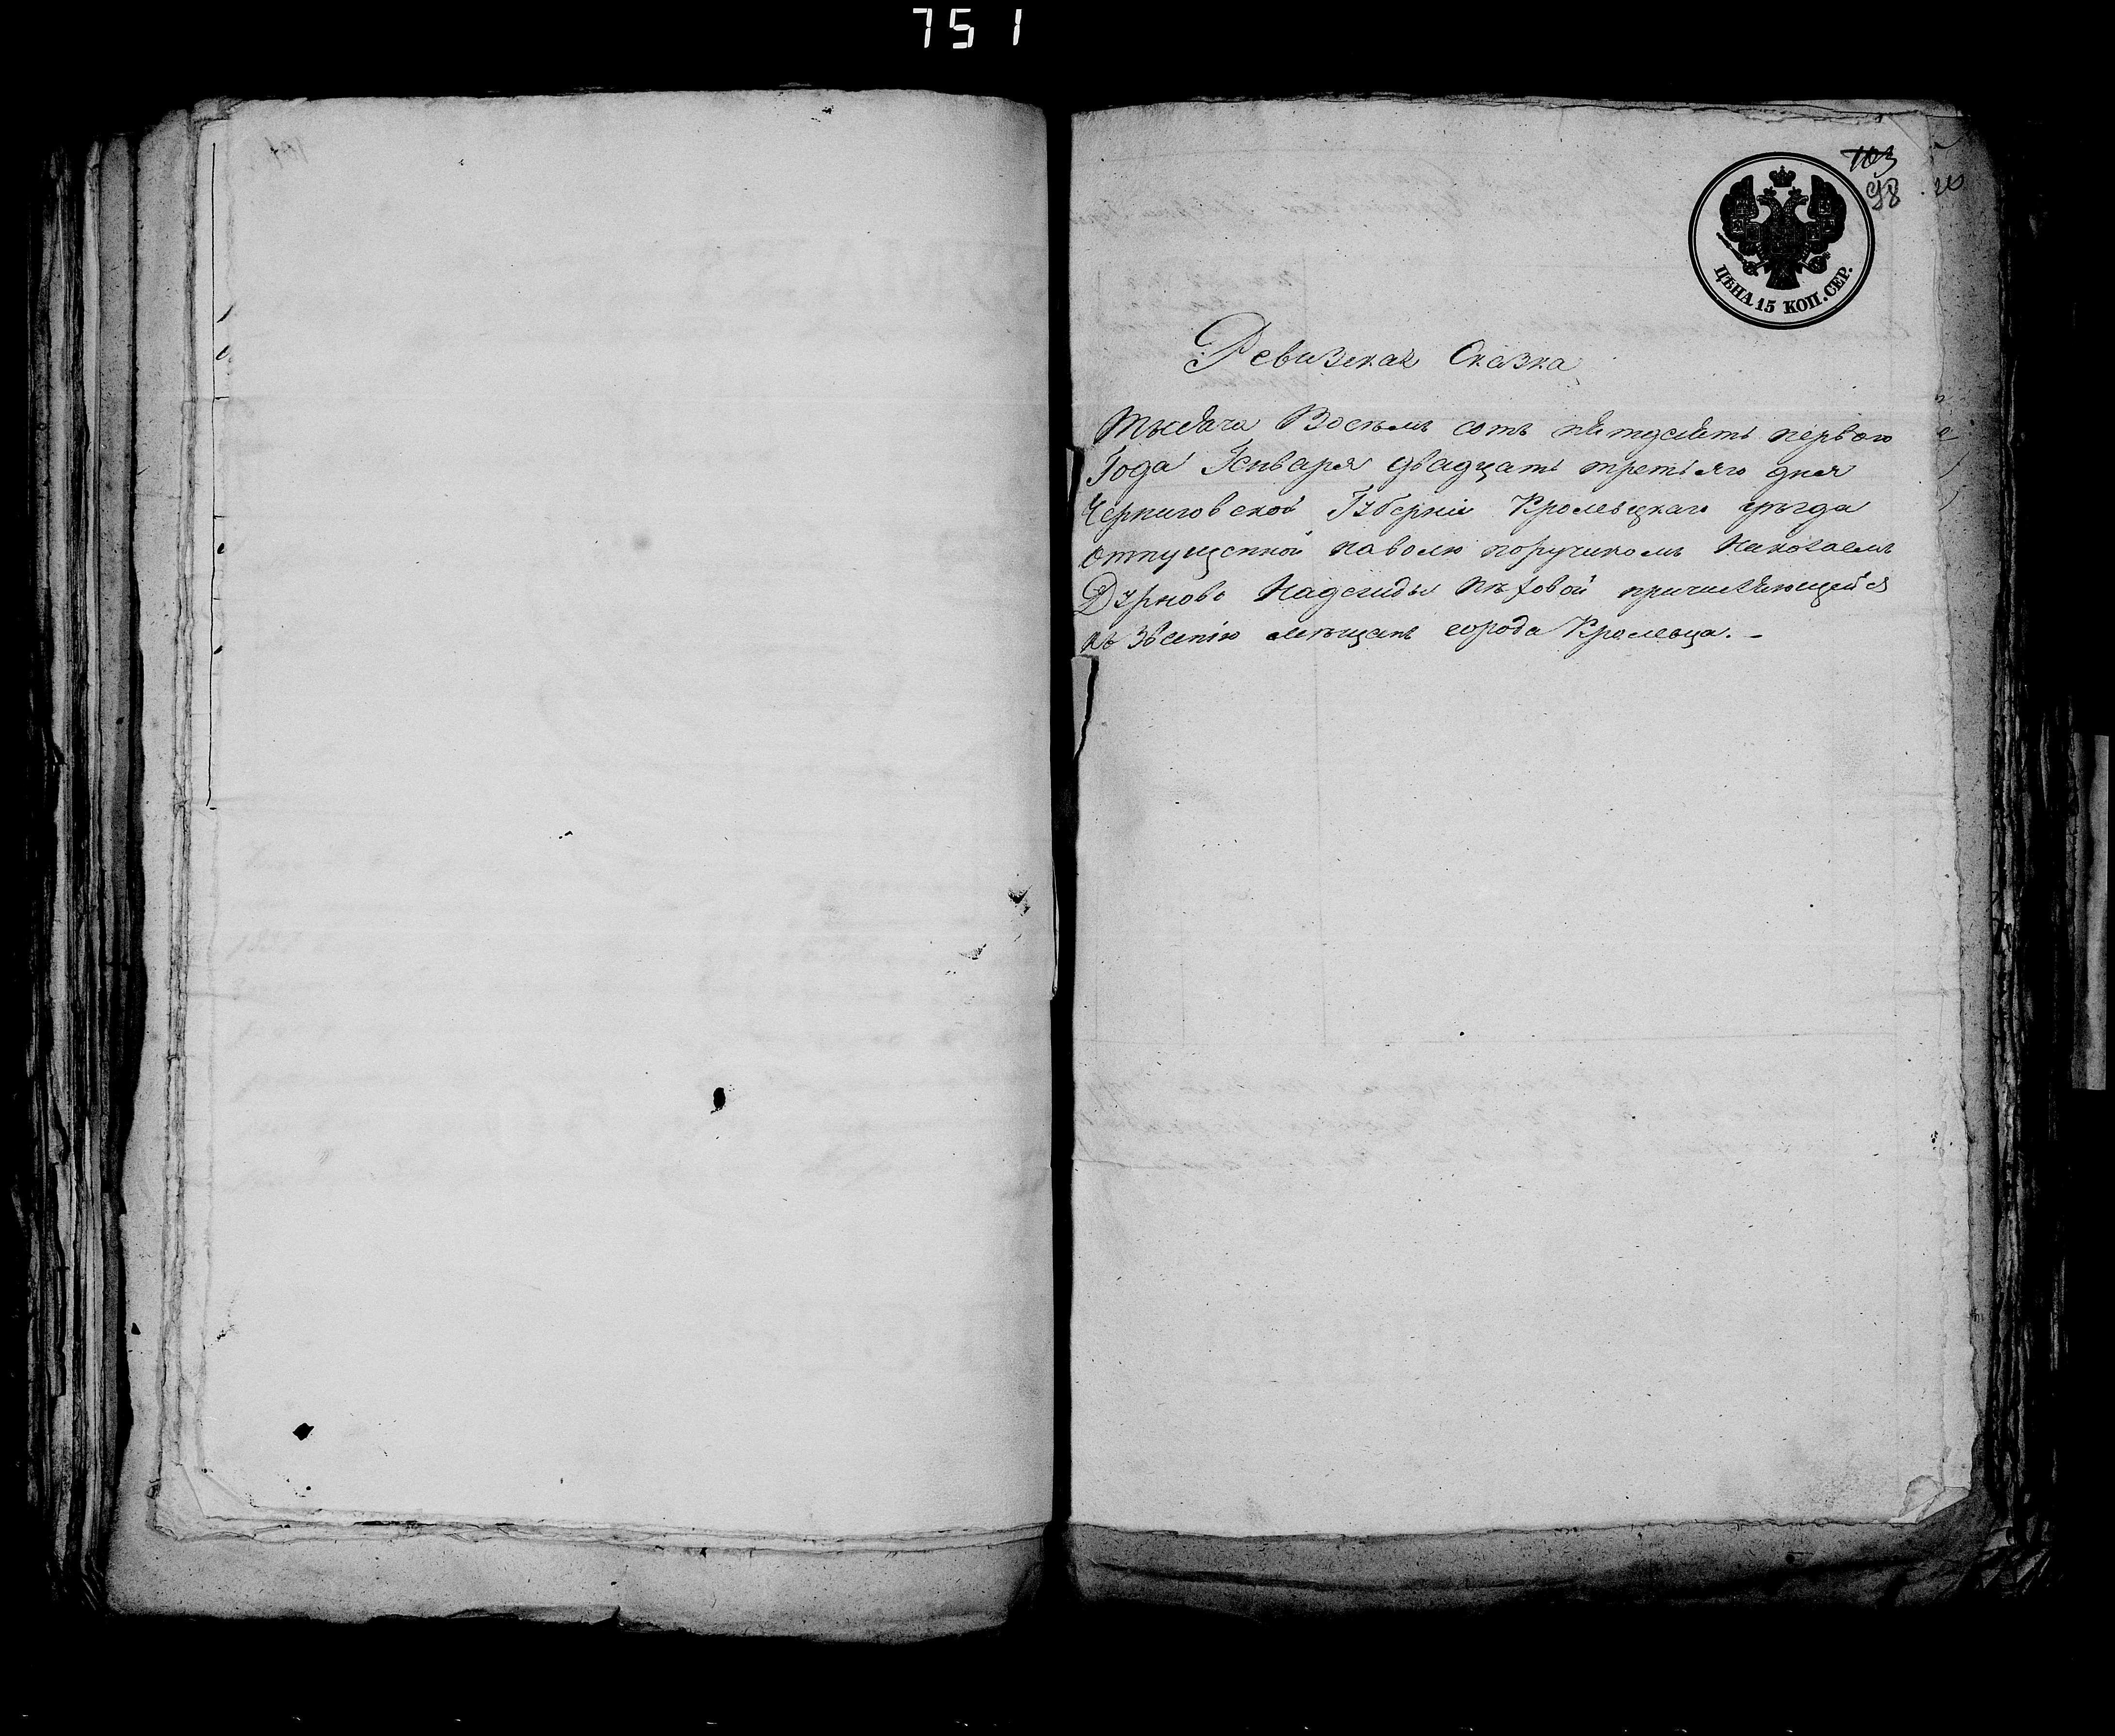 751
103
98
ЦѢНА 15 КОП. СЕР.
Ревизская Сказка
Тысяча Восемь сотъ пятдесятъ первого
Года Генваря двадцать третьяго дня
Черниговской Губерніи Кролевецкаго уѣзда
отпущенной наволю поручикомъ Николаемъ
Дурново Надежды причисляющейся
къ Званію мѣщанъ города Кролевца. -